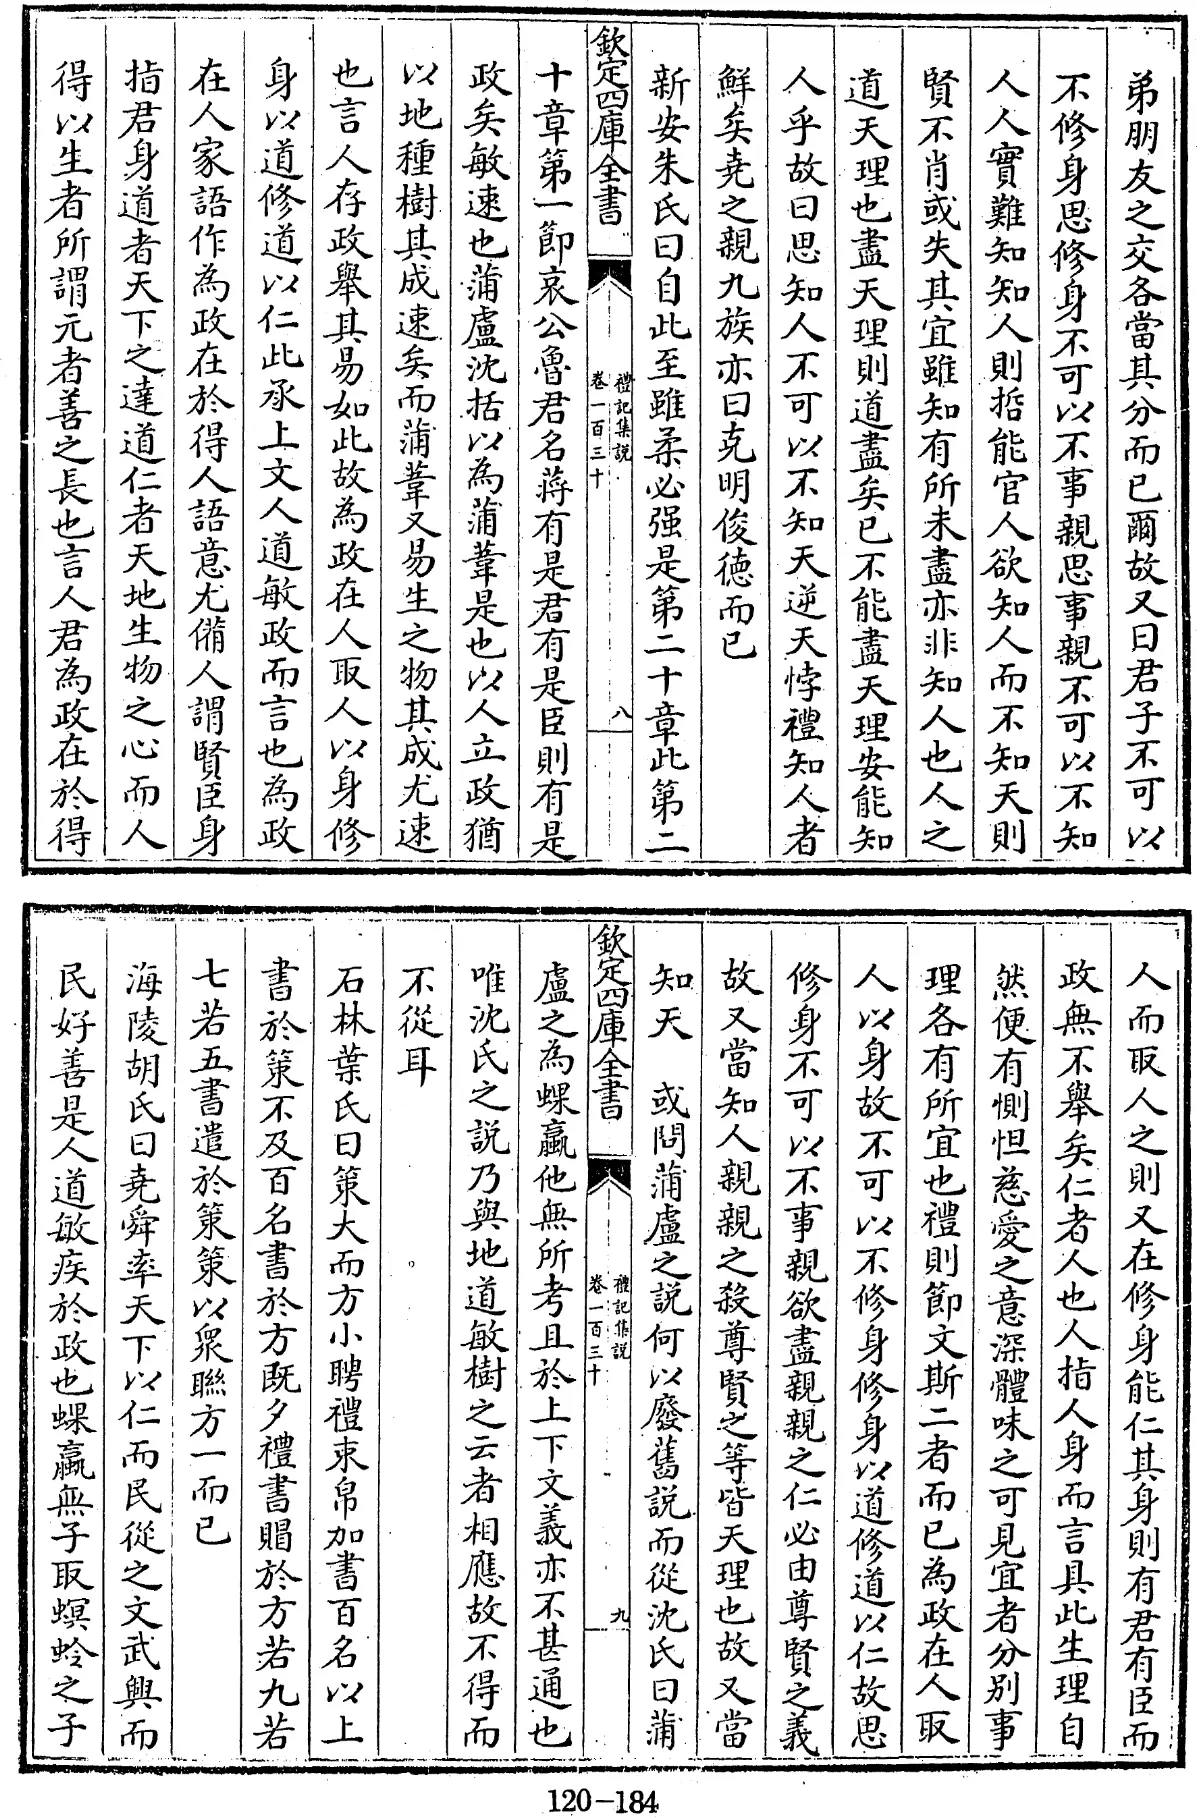 弟朋友之交各當其分而已爾故又曰君子不可以
不修身思修身不可以不事親思事親不可以不知
人人實難知知人則哲能官人欲知人而不知天則
賢不肖或失其宜雖知有所未盡亦非知人也人之
道天理也盡天理則道盡矣已不能盡天理安能知
人乎故曰思知人不可以不知天逆天悖禮知人者
鮮矣堯之親九族亦曰克明俊德而已
新安朱氏曰自此至雖柔必强是第二十章此第二
欽定四庫全書
禮記集説
卷一百三十
八
十章第一節哀公魯君名蔣有是君有是臣則有是
政矣敏速也蒲盧沈括以為蒲葦是也以人立政猶
以地種樹其成速矣而蒲葦又易生之物其成尤速
也言人存政舉其易如此故為政在人取人以身修
身以道修道以仁此承上文人道敏政而言也為政
在人家語作為政在於得人語意尤備人謂賢臣身
指君身道者天下之達道仁者天地生物之心而人
得以生者所謂元者善之長也言人君為政在於得
人而取人之則又在修身能仁其身則有君有臣而
政無不舉矣仁者人也人指人身而言具此生理自
然便有惻怛慈愛之意深體味之可見宜者分别事
理各有所宜也禮則節文斯二者而已為政在人取
人以身故不可以不修身修身以道修道以仁故思
修身不可以不事親欲盡親親之仁必由尊賢之義
故又當知人親親之殺尊賢之等皆天理也故又當
知天　或問蒲盧之説何以廢舊説而從沈氏曰蒲
欽定四庫全書
禮記集説
卷一百三十
九
盧之為蜾蠃他無所考且於上下文義亦不甚通也
唯沈氏之説乃與地道敏樹之云者相應故不得而
不從耳
石林葉氏曰策大而方小聘禮束帛加書百名以上
書於策不及百名書於方既夕禮書賵於方若九若
七若五書遣於策策以衆聯方一而已
海陵胡氏曰堯舜率天下以仁而民從之文武興而
民好善是人道敏疾於政也蜾蠃無子取螟蛉之子
120-184